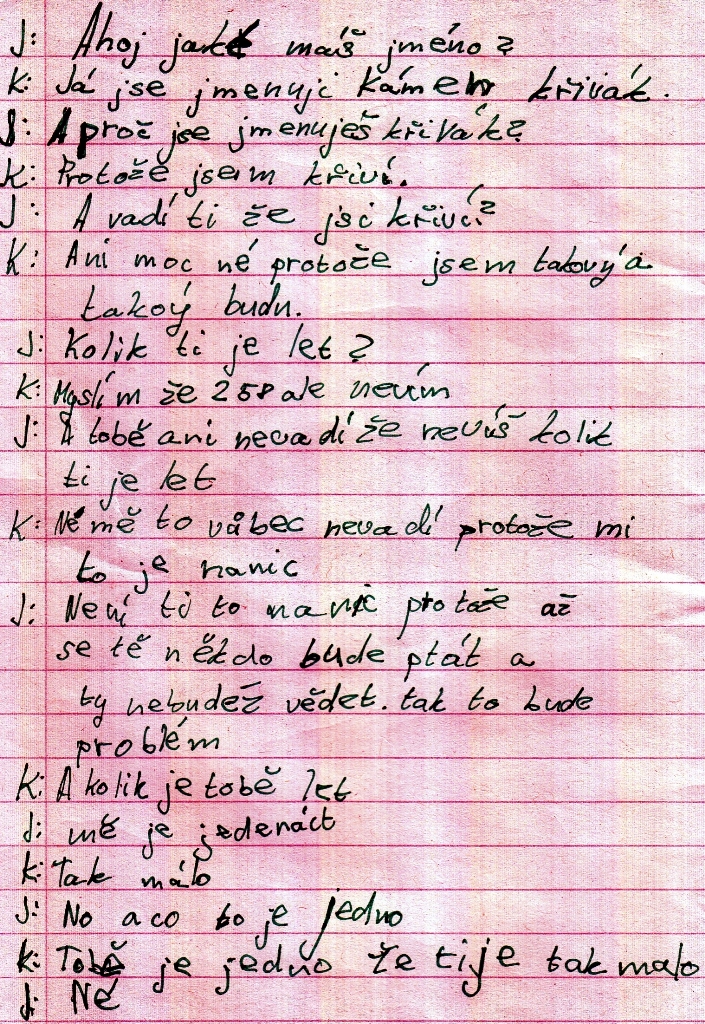 J: Ahoj jaké máš jméno?
K: Já jse jmenuji kámen křivák.
J: A proč jse jmenuješ křivák?
K: Protože jsem křiví.
J: A vadí ti že jsi křiví?
K: Ani moc né protože jsem takový a
takový budu.
J: Kolik ti je let?
K: Myslím že 258 ale nevím
J: A tobě ani nevadí že nevíš kolik
ti je let
K: Né mě to vůbec nevadí protože mi
to je nanic
J: Není ti to nanic protože až
se tě někdo bude ptát a
ty nebudež vědet. tak to bude
problém
K: A kolik je tobě let
J: mě je jedenáct
K: Tak málo
J: No a co to je jedno
K: Tobě je jedno že ti je tak malo
J: Né